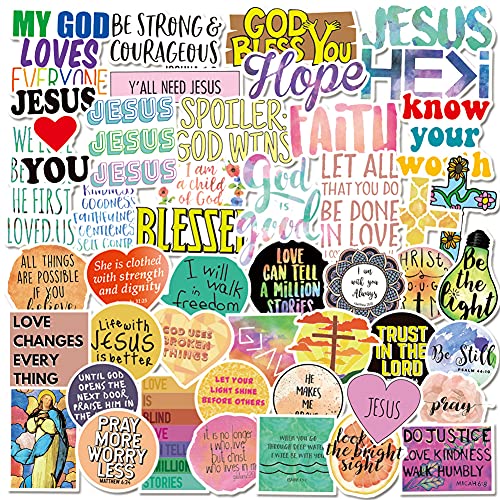 MY GOD
LOVES
EVERYONE
BE STRONG &
COURAGEOUS
GOD
BLESS YOU
JESUS
Hope
HE>i
JESUS
YOU
Y'ALL NEED JESUS
JESUS
JESUS
JESUS
SPOILER:
GOD WINS
FAITH
know
your
worth
HE FIRST
LOVED US
KINDNESS
GOODNESS
FAITHFULNE
GENTLENES
SELF CONTR
I am
a child
of God
BLESSED
God
is
good
LET ALL
THAT YOU DO
BE DONE
IN LOVE
ALL THINGS
ARE POSSIBLE
IF YOU
believe
She is clothed
with strength
and dignity
I will
walk in
freedom
LOVE
CAN TELL
A MILLION
STORIES
I am
with you
Always
Be
the
light
LOVE
CHANGES
EVERY
THING
Life with
JESUS
is better
GOD USES
BROKEN
THINGS
TRUST
IN THE
LORD
Be Still
PSALM 46:10
UNTIL GOD
OPENS THE
NEXT DOOR
PRAISE HIM IN
THE
LOVE
IS
BLIND
LOVE
TELL
MILLION
STORIES
LET YOUR
LIGHT SHINE
BEFORE OTHERS
HE
MAKES
ME
JESUS
pray
PRAY
MORE
WORRY
LESS
MATTHEW 6:34
it is no longer
i who live,
but christ
who lives in me
WHEN YOU GO
THROUGH DEEP WATERS
I WILL BE WITH YOU
look for the
bright
sight
DO JUSTICE
LOVE KINDNESS
WALK HUMBLY
MICAH 6:8